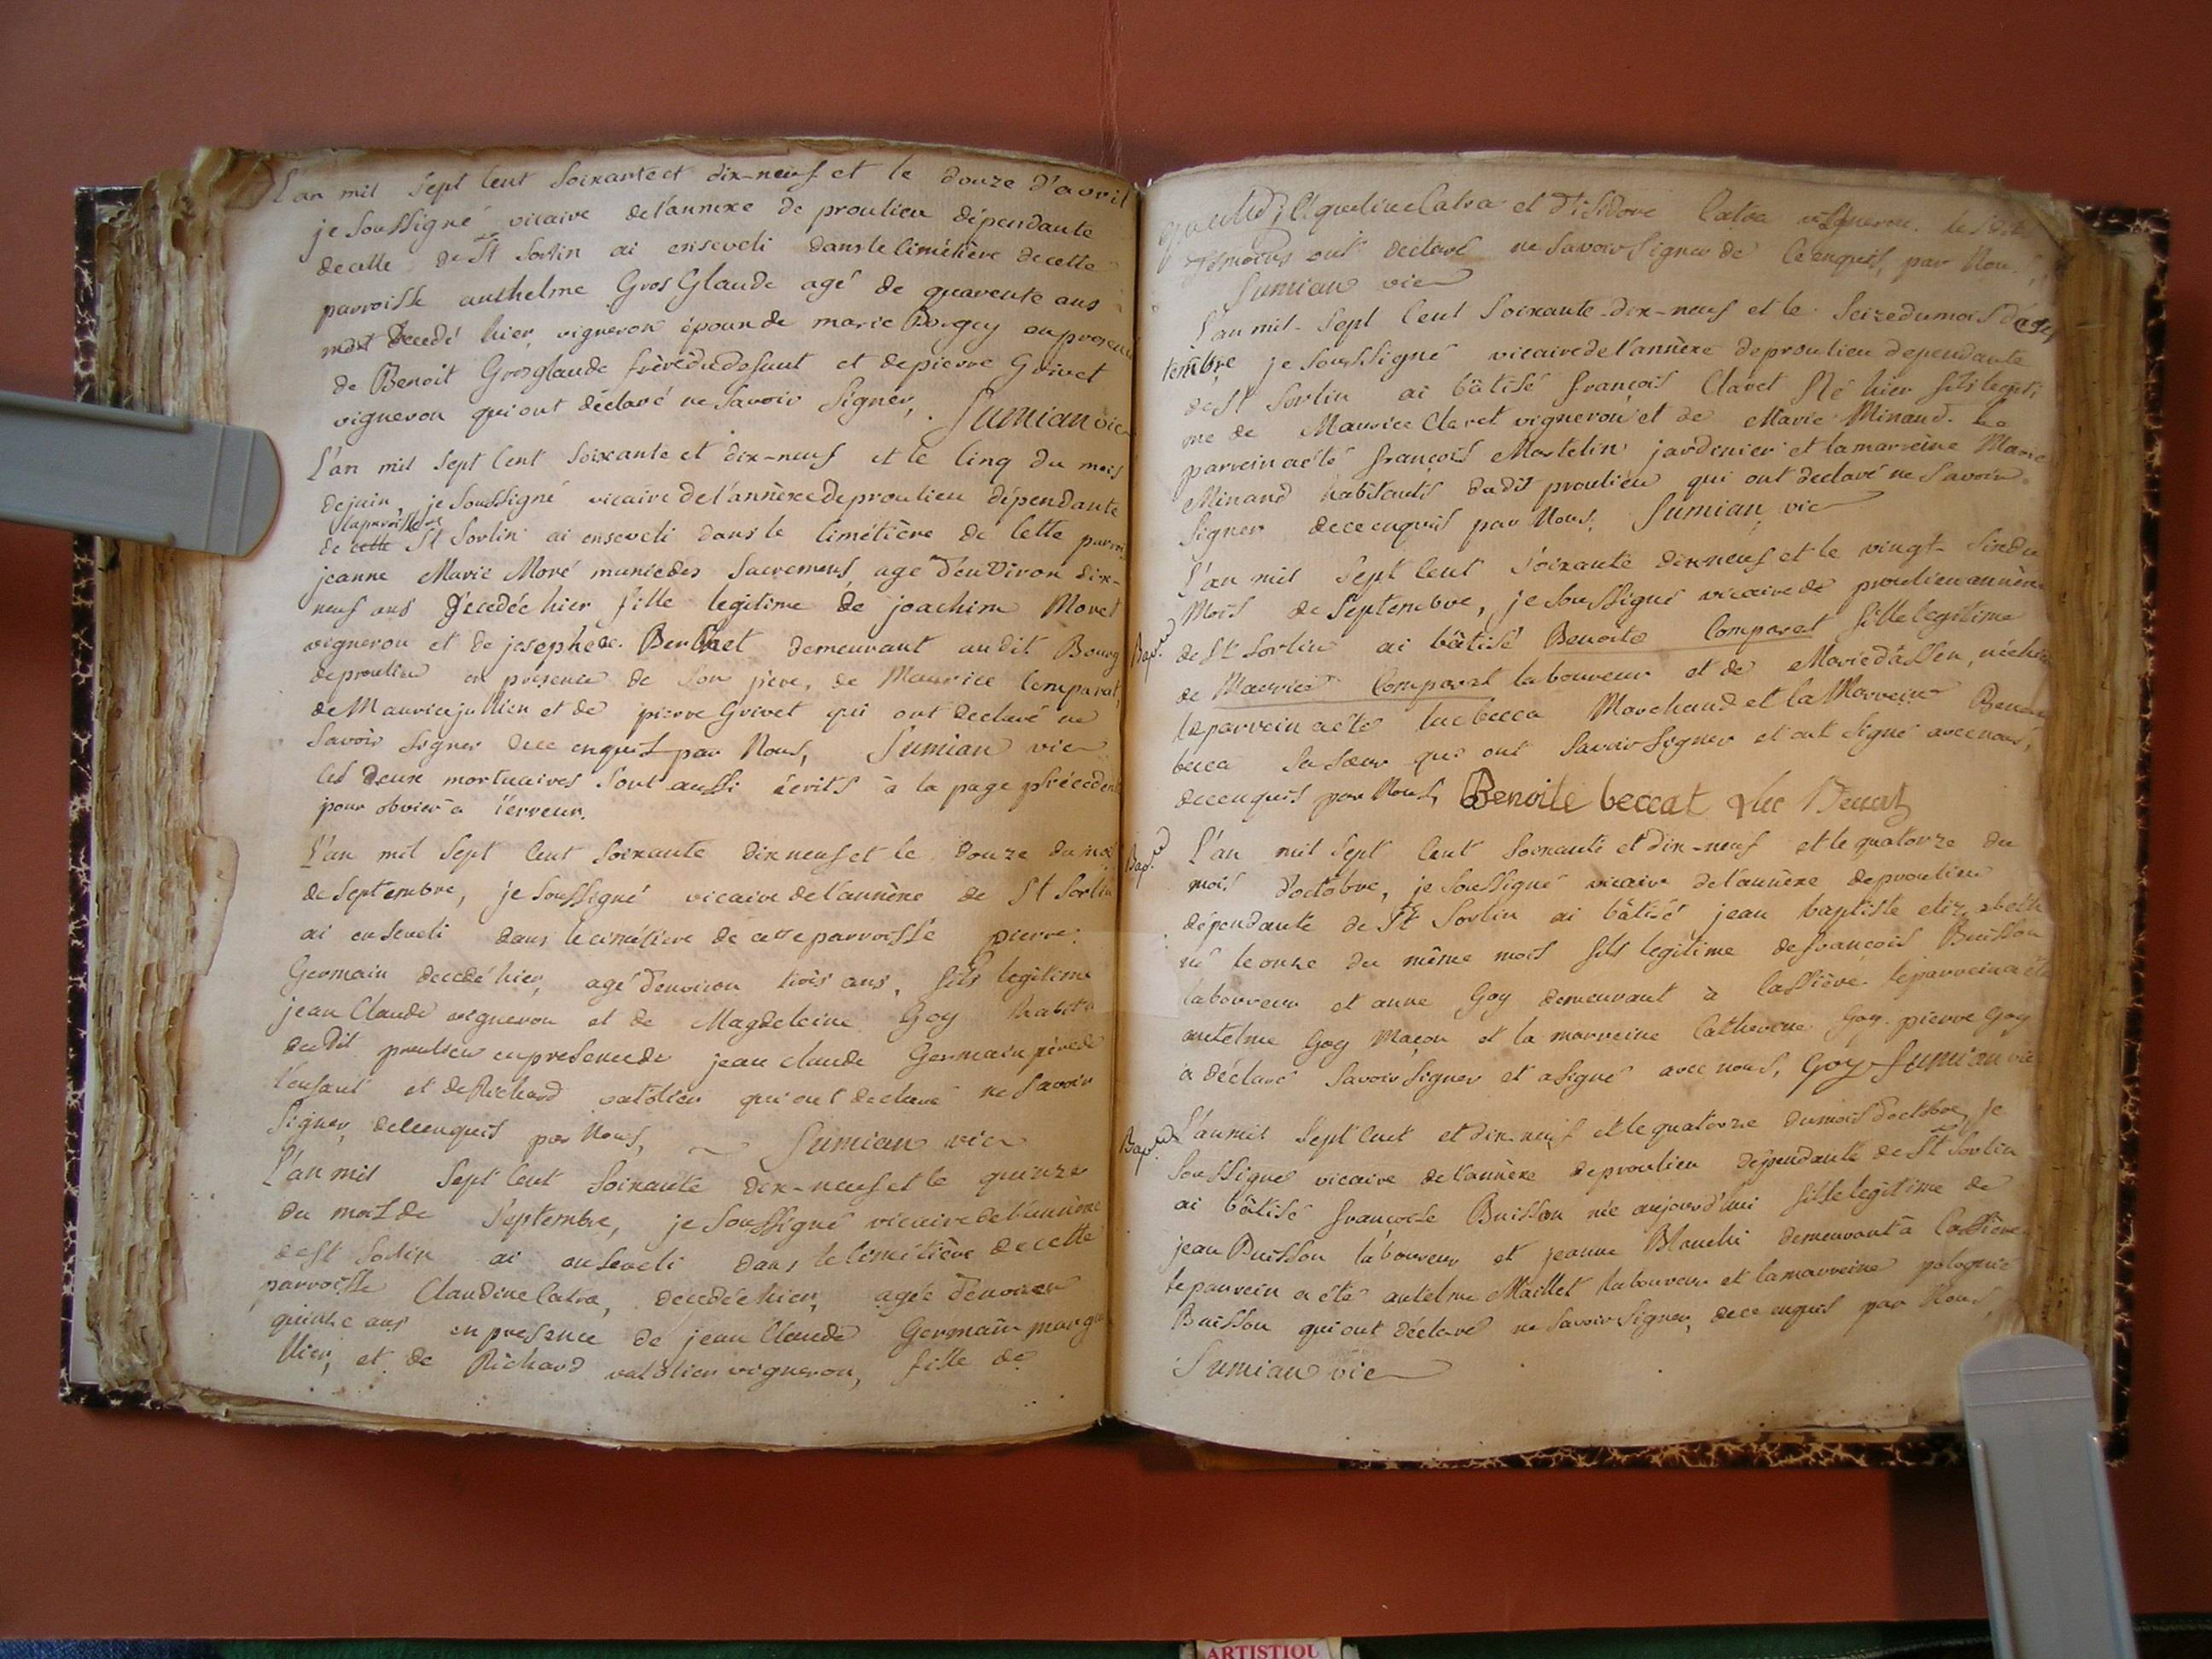 L'an mil sept cent soixante et dix-neuf et le douze d'avril
je soussigné vicaire de l'annexe de proulieu dépendante
de celle de St Sorlin ai enseveli dans le cimétière de cette
parroisse anthelme Gros Glaude agé de quarente ans
decedé hier, vigneron époux de marie en presence
de Benoit Grosglaude frère du defunt et de pierre Grivet
vigneron qui ont déclaré ne savoir signer, Sumian vic
L'an mil sept cent soixante et dix-neuf et le cinq du mois
de juin, je soussigné vicaire de l'annèxe de proulieu dépendante
la paroisse de
de celle St Sorlin ai enseveli dans le cimétière de cette parroi
jeanne Marie Moré munie des sacremens, agé d'environ dix-
neuf ans décedée hier fille legitime de joachim Moret
vigneron et de josephe Berthet demeurant au dit Bourg
de proulieu en presence de son père, de Maurice Comparat,
de Maurice jullien et de pierre Grivet qui ont declaré ne
savoir signer de ce enquis par Nous, Sumian vic
les deux mortuaires sont aussi écrits à la page précédent
pour obvier à l'erreur.
L'an mil sept cent soixante dix neuf et le douze du moi
de septembre, je soussigné vicaire de l'annèxe de St Sorlin
ai enseveli dans le cimétiere de cette parroisse pierre
Germain decedé hier, agé d'environ trois ans, fils legitime
jean Claude vigneron et de Magdeleine Goy habita
du dit proulieu en presence de jean claude Germain père de
l'enfant et de Richard vatolier qui ont declaré ne savoir
signer de ce enquis par Nous, Sumian vic
L'an mil sept cent soixante dix-neuf et le quinze
du mois de septembre, je soussigné vicaire de l'annèxe
de St Sorlin ai enseveli dans le cimétière de cette
parroisse Claudine Catra, decedée hier, agée d'environ
quinze ans en presence de jean Claude Germain margu
llier, et de Richard vatolier vigneron, fille de
Catra et d'isidore Catra vigneron. lesdits
témoins ont declaré ne savoir signer de ce enquis, par Nous,
Sumian vic
L'an mil-sept cent soixante-dix-neuf et le seize du mois de sep
tembre je soussigné vicaire de l'annèxe de proulieu dependante
de St Sorlin ai bâtisé françois Claret né hier fils legiti
me de Maurice Claret vigneron et de Marie Minand. Le
parrein a été françois Martelin jardinier et la marreine Marie
Minand habitants du dit proulieu qui ont declaré ne savoir
signer de ce enquis par Nous, Sumian vic
L'an mil sept cent soixante dix neuf et le vingt-six du
Mois de septembre, je soussigné vicaire de proulieu annèxe
Bap. de St Sorlin ai bâtisé Benoite Comparat fille legitime
de Maurice Comparat laboureur et de Marie dassin, née hier
le parrein a été luc becca Marchand et la Marreine Benoite
becca sa sœur qui ont savoir signer et ont signé avec nous,
de ce enquis par Nous, Benoite beccat Luc Beccat
Bap. L'an mil sept cent soixante et dix-neuf et le quatorze du
mois d'octobre, je soussigné vicaire de l'annèxe de proulieu
dépendante de St Sorlin ai bâtisé jean baptiste elizabeth
né le onze du même mois fils legitime de françois Buisson
laboureur et anne Goy demeurant à lassière le parrein a été
antelme Goy Maçon et la marreine Catherine Goy. pierre Goy
a déclaré savoir signer et a signé avec nous, Goy Sumian vic
Bap. L'an mil sept cent et dix-neuf et le quatorze du mois d'octobre, je
soussigné vicaire de l'annèxe de proulieu dépendante de St Sorlin
ai bâtisé françoise Buisson née aujourd'hui fille legitime de
jean Buisson laboureur et jeanne Blanchi demeurant à lassière
le parrein a été antelme Maillet laboureur et la marreine polognie
Buisson qui ont déclaré ne savoir signer, de ce enquis par Nous,
Sumian vic
ARTISTIQU